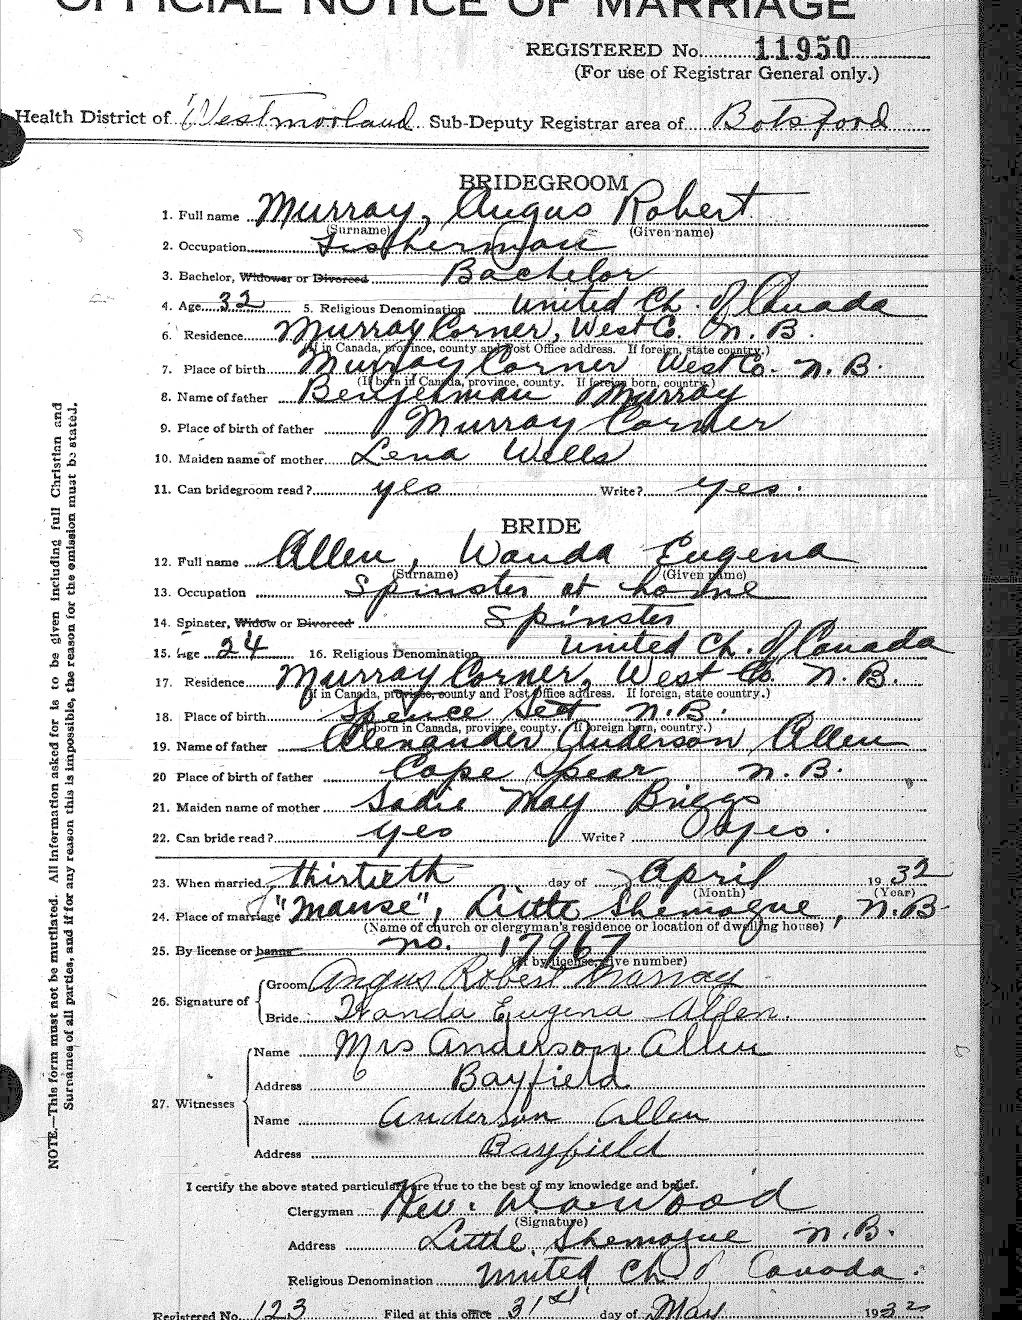 OFFICIAL NOTICE OF MARRIAGE
REGISTERED No. 11950
(For use of Registrar General only.)
Health District of Westmorland Sub-Deputy Registrar area of Botsford
BRIDEGROOM
1. Full name Murray, Angus Robert
(Surname) (Given name)
2. Occupation Fistherman
3. Bachelor, Widower or Divorced Bachelor
4. Age 32 5. Religious Denomination United Ch. of Canada
6. Residence Murray Corner, West Co. N. B.
(If in Canada, province, county and Post Office address. If foreign, state country.)
7. Place of birth Murray Corner West Co. N. B.
(If born in Canada, province, county. If foreign born, country.)
8. Name of father Benjerman Murray
9. Place of birth of father Murray Corner
10. Maiden name of mother Lena Wells
11. Can bridegroom read? yes Write? yes.
BRIDE
12. Full name Allen, Wanda Eugena
(Surname) (Given name)
13. Occupation Spinster at home
14. Spinster, Widow or Divorced Spinster
15. Age 24 16. Religious Denomination United Ch. of Canada
17. Residence Murray Corner, West Co. N. B.
(If in Canada, province, county and Post Office address. If foreign, state country.)
18. Place of birth Spence Sett N.B.
(If born in Canada, province, county. If foreign born, country.)
19. Name of father Alexander Anderson Allen
20 Place of birth of father Cape Spear N.B.
21. Maiden name of mother Sadie May Briggs
22. Can bride read? yes Write? yes.
23. When married thirtieth day of April 1932
(Month) (Year)
24. Place of marriage "Manse", Little Shemogue, N.B.
(Name of church or clergyman's residence or location of dwelling house)
25. By license or banns no. 17967
(If by license, give number)
26. Signature of Groom Angus Robert Murray
Bride Wanda Eugena Allen.
27. Witnesses Name Mrs Anderson Allen
Address Bayfield
Name Anderson Allen
Address Bayfield
I certify the above stated particulars are true to the best of my knowledge and belief.
Clergyman Rev. Wood
(Signature)
Address Little Shemogue N.B.
Religious Denomination United Ch. of Canada.
Registered No. 123 Filed at this office 31st day of May 1932
NOTE.—This form must not be mutilated. All information asked for is to be given including full Christian and
Surnames of all parties, and if for any reason this is impossible, the reason for the omission must be stated.